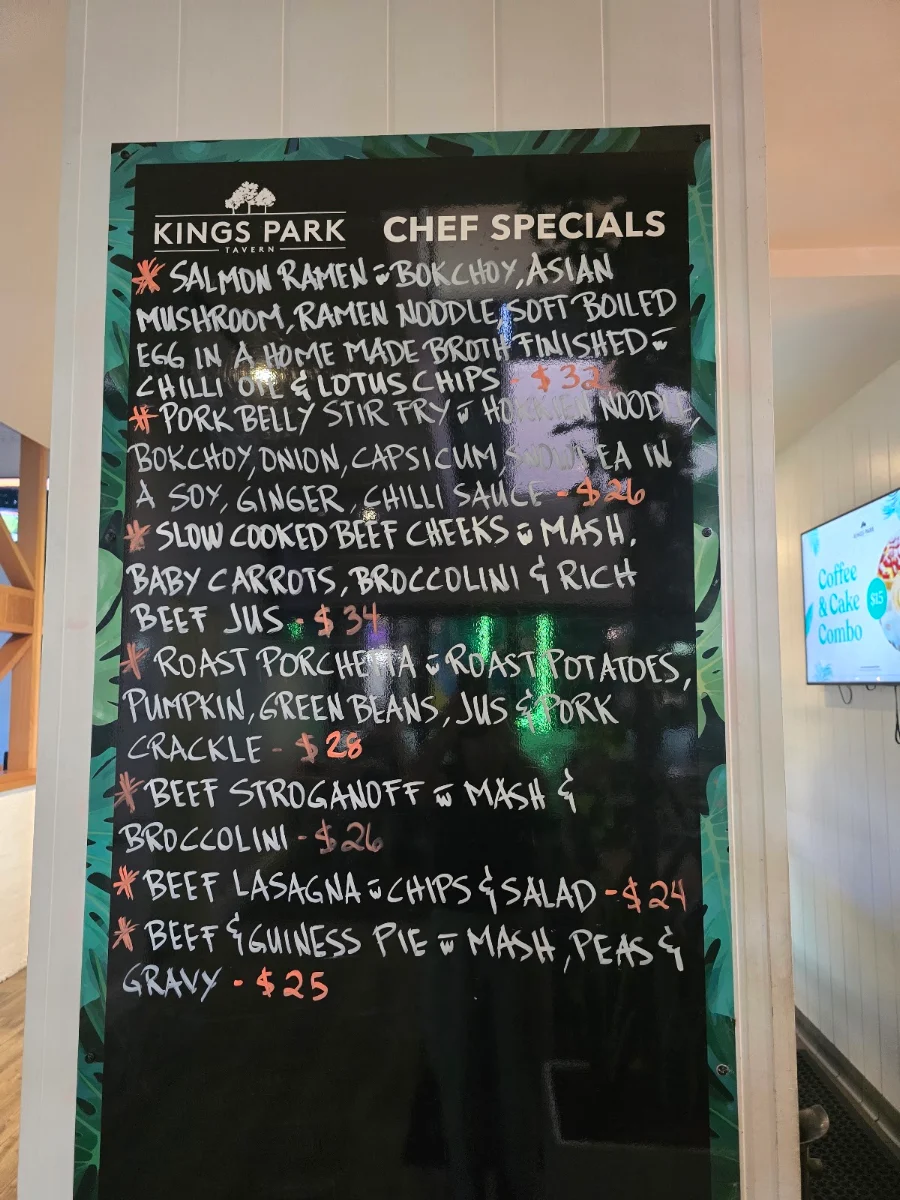 KINGS PARK
TAVERN
CHEF SPECIALS
* SALMON RAMEN w BOKCHOY, ASIAN
MUSHROOM, RAMEN NOODLE, SOFT BOILED
EGG IN A HOME MADE BROTH FINISHED w
CHILLI OIL & LOTUS CHIPS - $32
* PORK BELLY STIR FRY w HOKKIEN NOODLE,
BOKCHOY, ONION, CAPSICUM, SNOW PEA IN
A SOY, GINGER, CHILLI SAUCE - $26
* SLOW COOKED BEEF CHEEKS w MASH,
BABY CARROTS, BROCCOLINI & RICH
BEEF JUS - $34
* ROAST PORCHETTA w ROAST POTATOES,
PUMPKIN, GREEN BEANS, JUS & PORK
CRACKLE - $28
* BEEF STROGANOFF w MASH &
BROCCOLINI - $26
* BEEF LASAGNA w CHIPS & SALAD - $24
* BEEF & GUINESS PIE w MASH, PEAS &
GRAVY - $25
KINGS PARK
Coffee
& Cake
Combo
$15